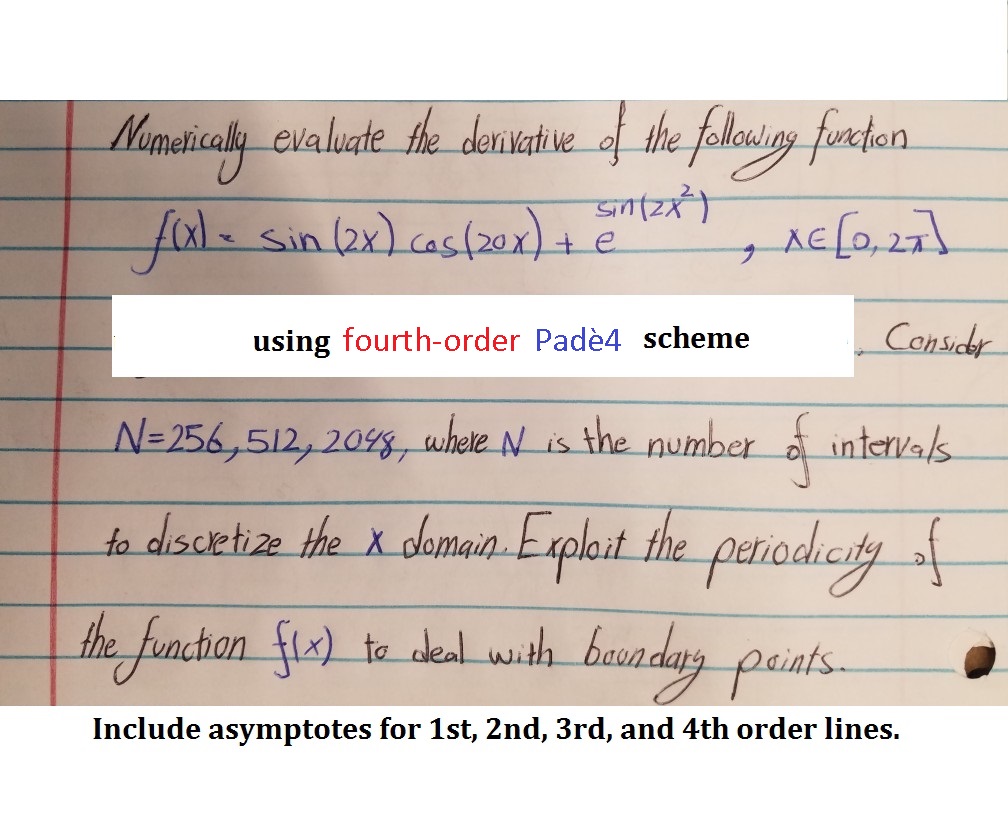 Numerically evaluate the derivative of the following function
f(x) = sin(2x) cos(20x) + e^sin(2x²) , x∈[0, 2π]
using fourth-order Padè4 scheme . Consider
N=256, 512, 2048, where N is the number of intervals
to discretize the x domain. Exploit the periodicity of
the function f(x) to deal with boundary points.
Include asymptotes for 1st, 2nd, 3rd, and 4th order lines.